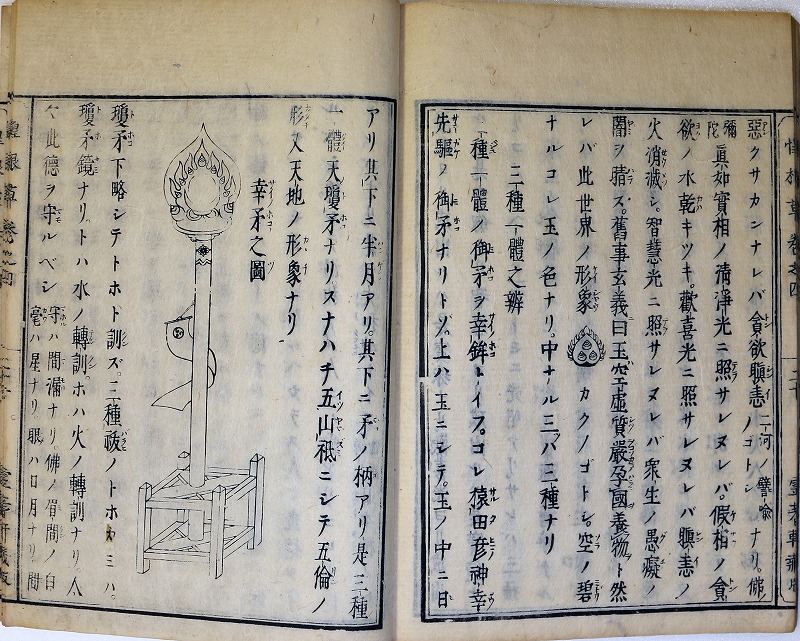 惡クサカンナレバ貪欲瞋恚二河ノ譬喩ノゴトシナリ。佛
彌陀眞如實相ノ清淨光ニ照サレヌレバ。假相ノ貪
欲ノ水乾キツキ。歡喜光ニ照サレヌレバ瞋恚ノ
火消滅シ。智慧光ニ照サレヌレバ衆生ノ愚癡ノ
闇ヲ晴ス。舊事玄義曰玉空虚質嚴孕國養物ト然
レバ此世界ノ形象カクノゴトシ。空ノ碧
ナルコレ玉ノ色ナリ。中ナル三ハ三種ナリ
三種一體之辨
三種一體ノ御矛ヲ幸鉾トイフ。コレ猿田彦神幸
先驅ノ御矛ナリトゾ。上ハ玉ニシテ。玉ノ中ニ日
アリ其下ニ半月アリ。其下ニ矛ノ柄アリ是三種
一體天瓊矛ナリスナハチ五山祗ニシテ五倫ノ
形又天地ノ形象ナリ
幸矛之圖
瓊矛下略シテトホト訓ズ。三種祓ノトホカミハ。
瓊矛鏡ナリ。トハ水ノ轉訓。ホハ火ノ轉訓ナリ。人
々此德ヲ守ルベシ
守ハ間滿ナリ。佛ノ眉間ノ白
毫ハ星ナリ眼ハ日月ナリ。間